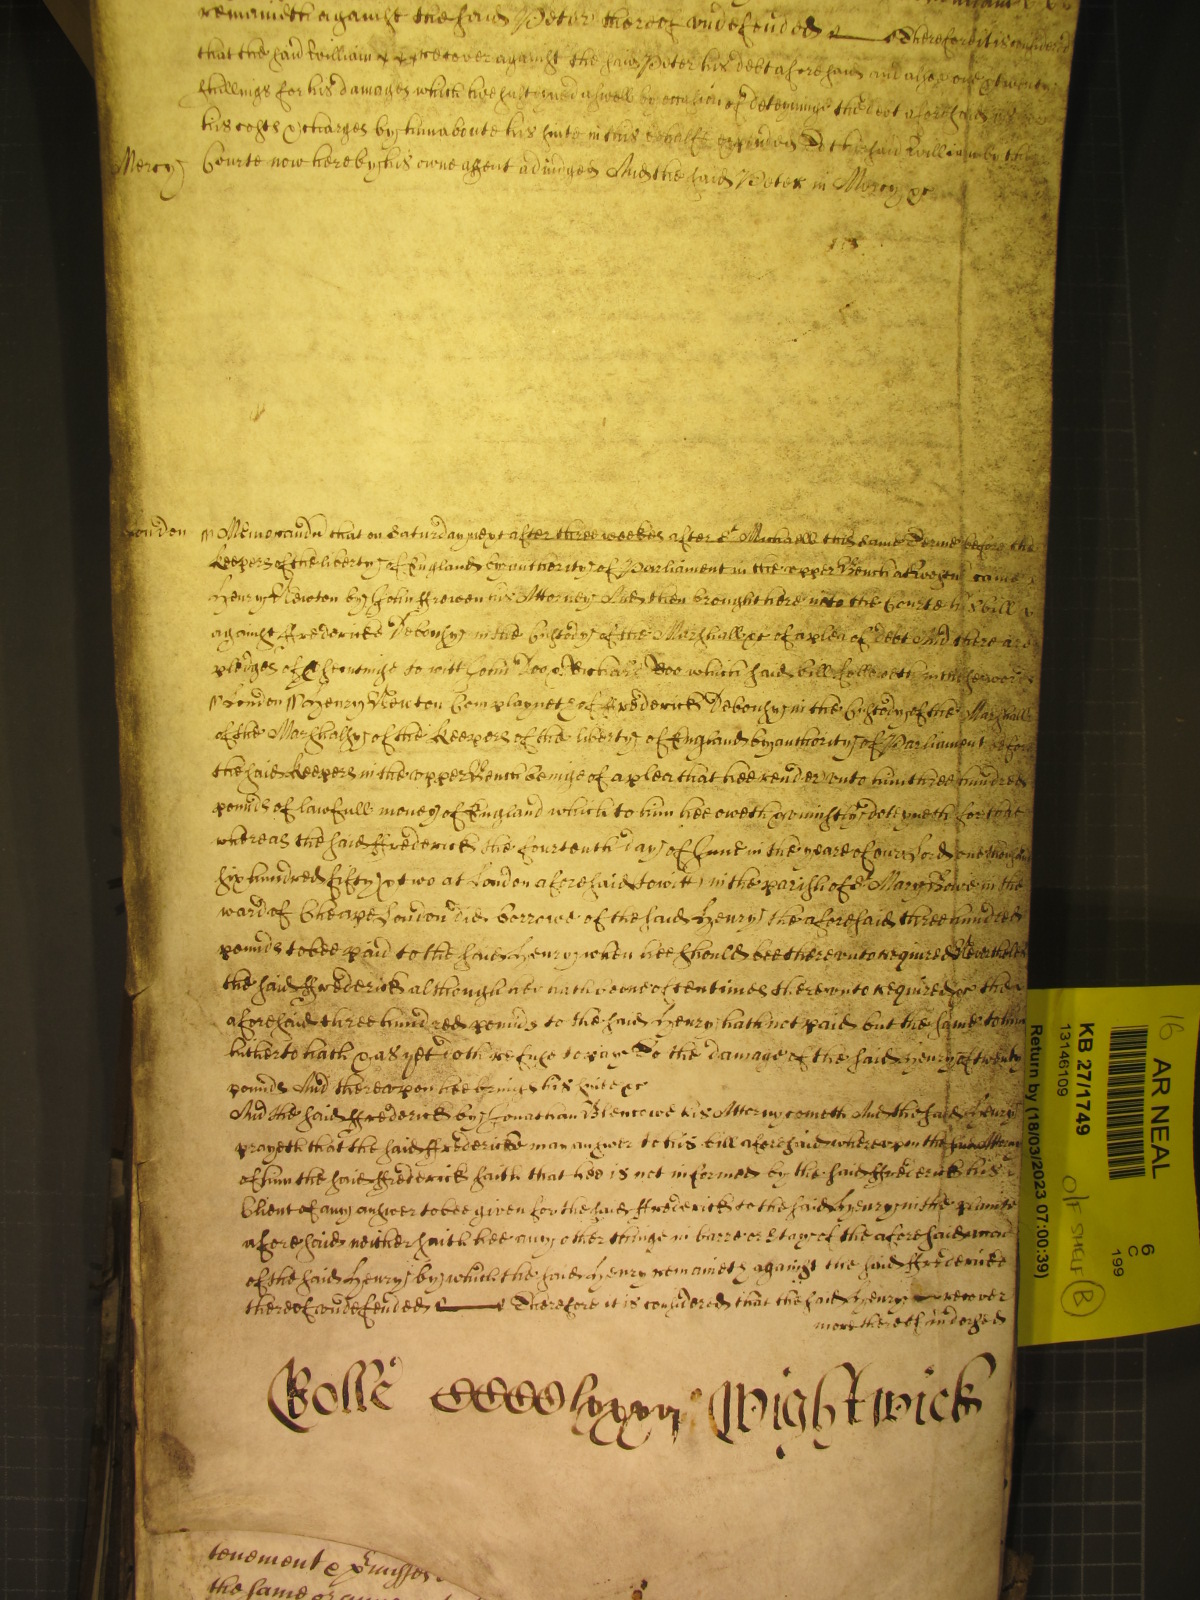 remaineth against the said Peter thereof undefended Therefore it is considered
that the said William recover against the said Peter his debt aforesaid and also twenty
shillings for his damages which hee hath susteined aswell by occasion of deteyninge the debt aforesaid as for
his costs & charges by him aboute his suite in this behalfe expended To the said William by the
Mercy Courte now here by his owne assent adiudged And the said Peter in Mercy &c
London ss Memorandu that on Saturday next after three weekes after St Michaell this same Terme before the
keepers of the liberty of England by authority of Parliament in the upper Bench at came
Henry Newton by John ffrewen his Attorney And then brought here into the Courte his bill
against ffredericke Debonhy in the Custody of the Marshall &c of a plea of debt And there are
pledges of to witt John Doo & Richard Roo which said bill followeth in these words
ss London ss Henry Newton Complayneth of ffrederick Debonhy in the Custody of the Marshall
of the Marshalsy of the keepers of the liberty of England by authority of Parliament before
the said keepers in the upper Bench beinge of a plea that hee render unto him three hundred
pounds of lawfull money of England which to him hee oweth & uniustly deteyneth for that
whereas the said ffrederick the fourteenth day of June in the yeare of our Lord one thousand
six hundred fifty & two at London aforesaid towitt in the parish of St Mary Bowe in the
ward of Cheape London did borrowe of the said Henry the aforesaid three hundred
pounds to bee paid to the said Henry when hee should bee thereunto required Neverthelesse
the said ffrederick although often times thereunto required &c the
aforesaid three hundred pounds to the said Henry hath not paid but the same to him
hitherto hath & as yet doth refuse to pay To the damage of the said Henry of twenty
pounds And thereupon hee bringes his suite &c
And the said ffrederick by Jonathan Blencowe his Attorny cometh And the said Henry
prayeth that the said ffredericke may answer to his bill aforesaid whereupon the said Attorny
of him the said ffrederick saith that hee is not informed by the said ffrederick his
Client of any answer to bee given for the said ffrederick to the said Henry in the premisses
aforesaid neither saith hee any other thinge in barre or stay of the aforesaid accon
of the said Henry by which the said Henry remaineth against the said ffredericke
thereof undefended Therefore it is considered that the said Henry recover
more thereof indorsed
Rolle CCCClxxvi Wightwick
tenement
the same
16
AR NEAL
6
C
199
KB 27/1749
13146109
Return by (18/03/2023 07:00:39)
O/F SHELF B